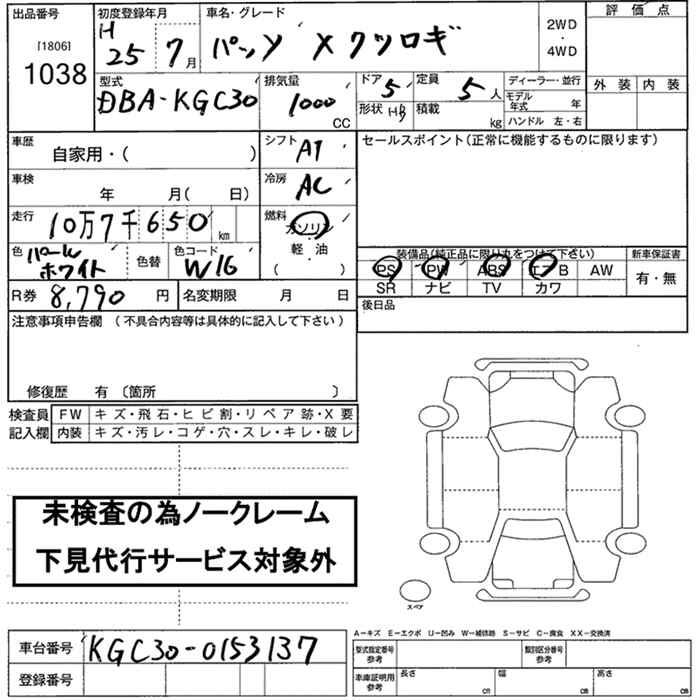 出品番号 初度登録年月 車名・グレード 2WD ・ 4WD 評価点
[1806] H 25 7月 パッソ X クツロギ
1038 外装 内装
型式 排気量 ドア 5 定員 5人 ディーラー・並行
DBA-KGC30 1000 CC 形状 HB 積載 kg モデル年式 年
ハンドル 左・右
車歴 自家用・( ) シフト AT セールスポイント(正常に機能するものに限ります)
車検 年 月( 日) 冷房 AC
走行 10万7千650 km 燃料 ガソリン
軽・油
( )
色 パールホワイト 色替 色コード W16
装備品(純正品に限り丸をつけて下さい) 新車保証書
PS PW ABS エアB AW 有・無
SR ナビ TV カワ
R券 8,790 円 名変期限 月 日 後日品
注意事項申告欄 (不具合内容等は具体的に記入して下さい)
修復歴 有 〔箇所 〕
検査員記入欄 FW キズ・飛石・ヒビ割・リペア跡・X要
内装 キズ・汚レ・コゲ・穴・スレ・キレ・破レ
未検査の為ノークレーム
下見代行サービス対象外
スペア
A-キズ E-エクボ U-凹み W-補修跡 S-サビ C-腐食 XX-交換済
車台番号 KGC30-0153137 型式指定番号 参考 類別区分番号 参考
登録番号 車庫証明用 参考 長さ cm 幅 cm 高さ cm